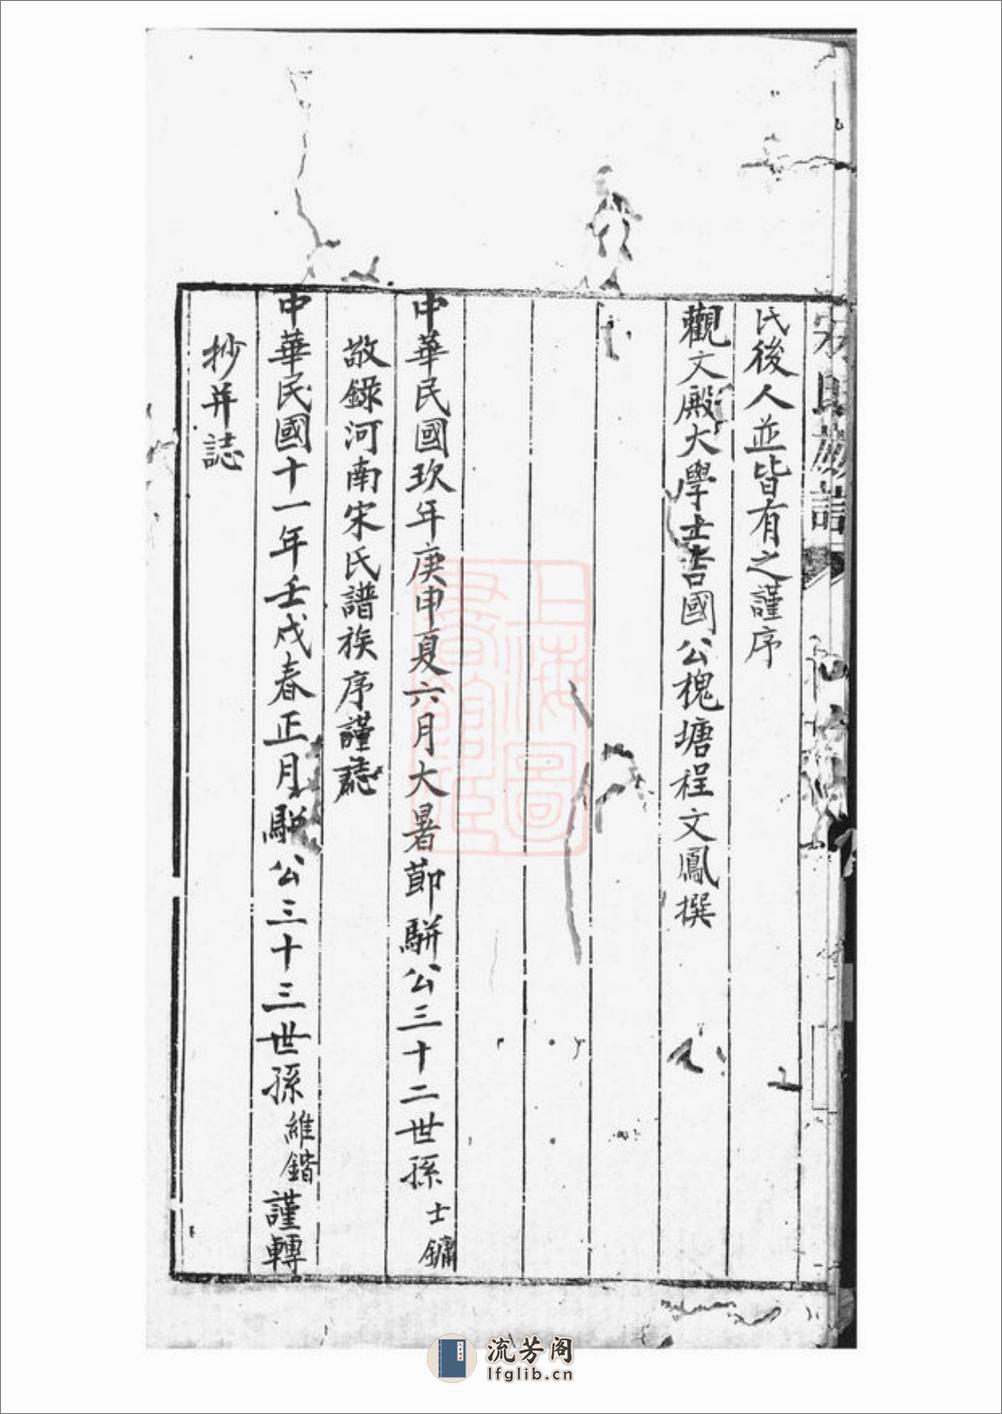 氏後人並皆有之謹序
觀文殿大學士吉國公槐塘程文鳳撰
中華民國玖年庚申夏六月大暑節駢公三十二世孫士鏞
敬錄河南宋氏譜族序謹誌
中華民國十一年壬戌春正月駢公三十三世孫維鍇謹轉
抄并誌
宋氏族譜
上海圖
書館藏
流芳阁
lfglib.cn